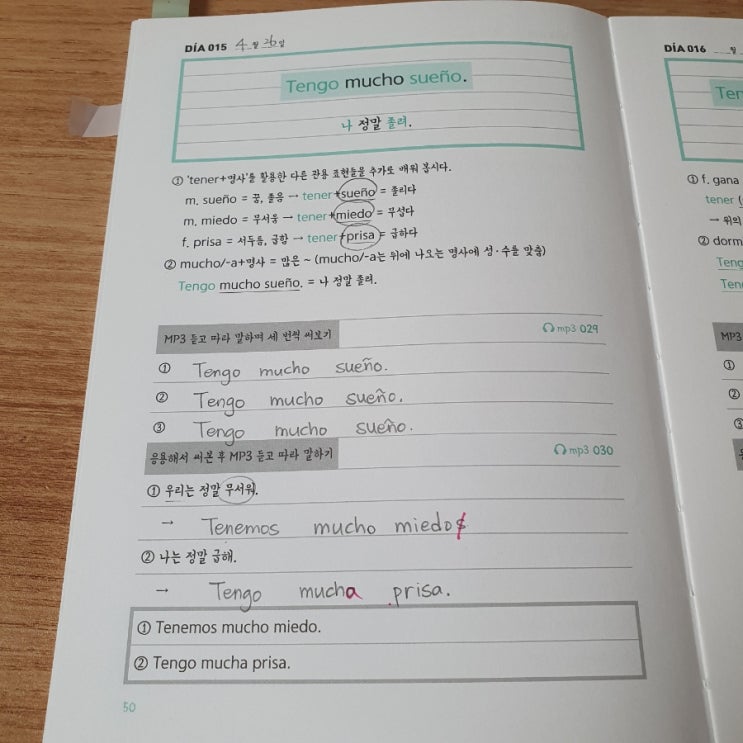 DÍA 015 4 월 26 일
Tengo mucho sueño.
나 정말 졸려.
① 'tener+명사'를 활용한 다른 관용 표현들을 추가로 배워 봅시다.
m. sueño = 꿈, 졸음 → tener+sueño = 졸리다
m. miedo = 무서움 → tener+miedo = 무섭다
f. prisa = 서두름, 급함 → tener+prisa = 급하다
② mucho/-a+명사 = 많은 ~ (mucho/-a는 뒤에 나오는 명사에 성·수를 맞춤)
Tengo mucho sueño. = 나 정말 졸려.
MP3 듣고 따라 말하며 세 번씩 써보기 mp3 029
① Tengo mucho sueño.
② Tengo mucho sueño.
③ Tengo mucho sueño.
응용해서 써본 후 MP3 듣고 따라 말하기 mp3 030
① 우리는 정말 무서워.
→ Tenemos mucho miedo
② 나는 정말 급해.
→ Tengo mucha prisa.
① Tenemos mucho miedo.
② Tengo mucha prisa.
50
DÍA 016 월
① f. gana
tener
→ 위의
② dorm
MP3
①
②
③
①
②